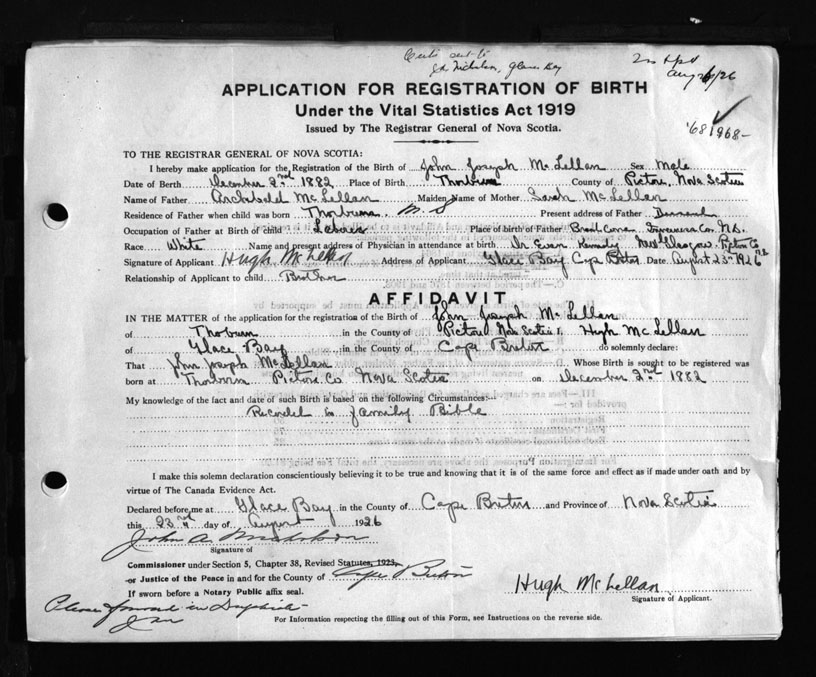 sent to
Nicholson, Glace Bay
Aug /26
APPLICATION FOR REGISTRATION OF BIRTH
Under the Vital Statistics Act 1919
Issued by The Registrar General of Nova Scotia.
'68 1968-
TO THE REGISTRAR GENERAL OF NOVA SCOTIA:
I hereby make application for the Registration of the Birth of John Joseph McLellan Sex Male
Date of Birth December 2nd 1882 Place of Birth Thorburn County of Pictou, Nova Scotia
Name of Father Archibald McLellan Maiden Name of Mother Sarah McLellan
Residence of Father when child was born Thorburn N.S Present address of Father
Occupation of Father at Birth of child Laborer Place of birth of Father Broad Cove Inverness Co. N.S.
Race White Name and present address of Physician in attendance at birth Dr Evan Kennedy New Glasgow Pictou Co
Signature of Applicant Hugh McLellan Address of Applicant Glace Bay Cape Breton Date August 23rd 1926
Relationship of Applicant to child Brother
AFFIDAVIT
IN THE MATTER of the application for the registration of the Birth of John Joseph McLellan
of Thorburn in the County of Pictou Nova Scotia I, Hugh McLellan
of Glace Bay in the County of Cape Breton do solemnly declare:
That John Joseph McLellan Whose Birth is sought to be registered was
born at Thorburn Pictou Co Nova Scotia on December 2nd 1882
My knowledge of the fact and date of such Birth is based on the following Circumstances:-
Recorded in family Bible
I make this solemn declaration conscientiously believing it to be true and knowing that it is of the same force and effect as if made under oath and by
virtue of The Canada Evidence Act.
Declared before me at Glace Bay in the County of Cape Breton and Province of Nova Scotia
this 23rd day of August 1926
John A. Nicholson
Signature of
Commissioner under Section 5, Chapter 38, Revised Statutes, 1923,
or Justice of the Peace in and for the County of Cape Breton
If sworn before a Notary Public affix seal.
Hugh McLellan
Signature of Applicant.
Please forward in Duplicate
For Information respecting the filling out of this Form, see Instructions on the reverse side.